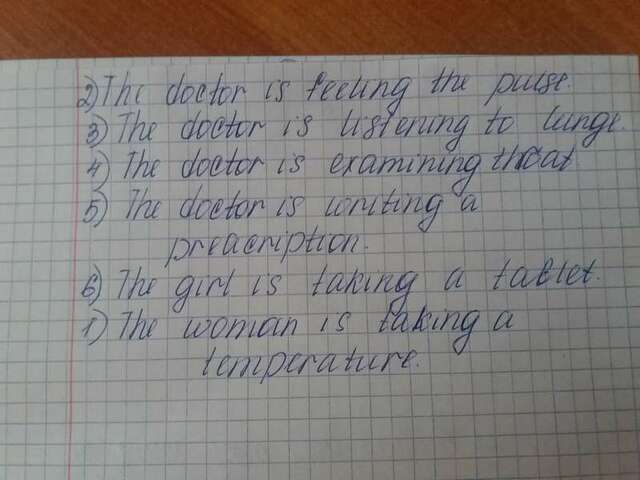 2) The doctor is feeling the pulse.
3) The doctor is listening to lungs.
4) The doctor is examining throat
5) The doctor is writing a
prescription.
6) The girl is taking a tablet.
1) The woman is taking a
temperature.